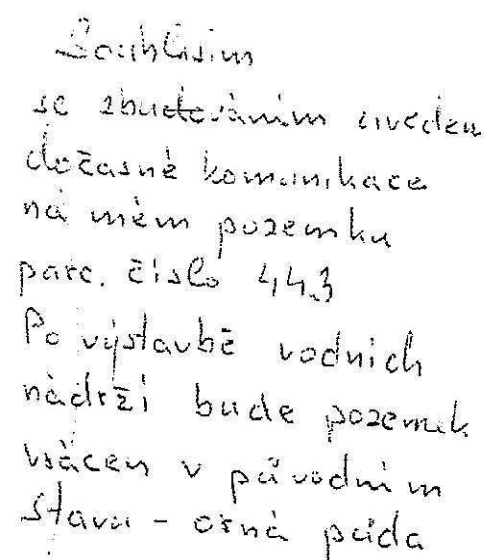 Souhlasím
se zbudováním uveden
dočasné komunikace
na mém pozemku
parc. číslo 443
Po výstavbě vodních
nádrží bude pozemek
vrácen v původním
stavu - orná půda